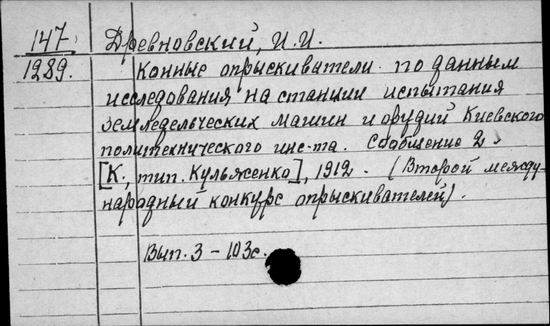 147. Древновский, И.И.
1289. Конные опрыскиватели по данным
исследования на станции испытания
земледельческих машин и орудий Киевского
политехнического инс-та. Сообщение 2.
[К., тип. Кульженко], 1912. (Второй между-
народный конкурс опрыскивателей).
Вып. 3 - 103с.